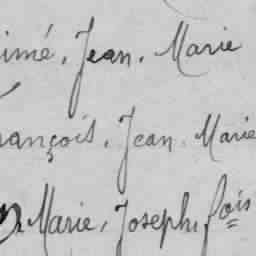 imé, Jean, Marie
rançois, Jean Marie
Marie, Joseph, fois